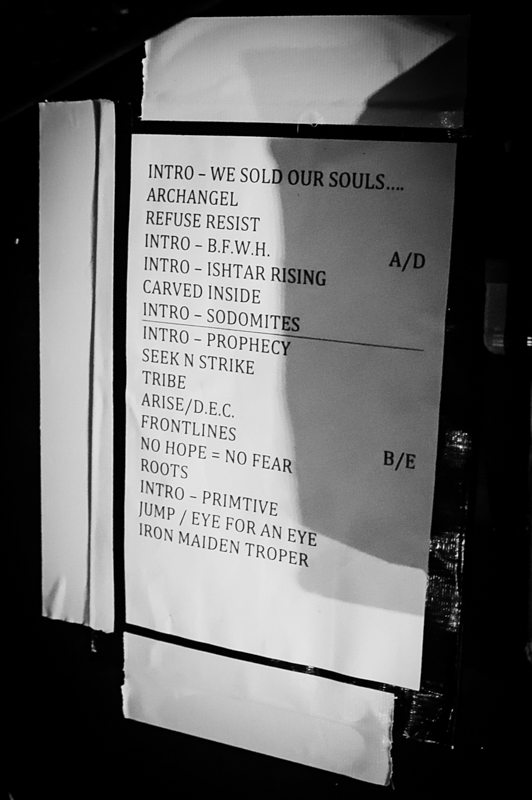 INTRO – WE SOLD OUR SOULS....
ARCHANGEL
REFUSE RESIST
INTRO – B.F.W.H.
A/D
INTRO – ISHTAR RISING
CARVED INSIDE
INTRO – SODOMITES
INTRO – PROPHECY
SEEK N STRIKE
TRIBE
ARISE/D.E.C.
FRONTLINES
NO HOPE = NO FEAR
B/E
ROOTS
INTRO – PRIMTIVE
JUMP / EYE FOR AN EYE
IRON MAIDEN TROPER